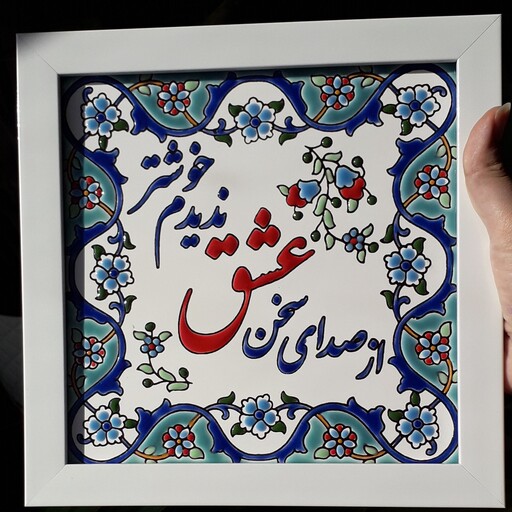 از صدای سخن عشق
ندیدم خوشتر